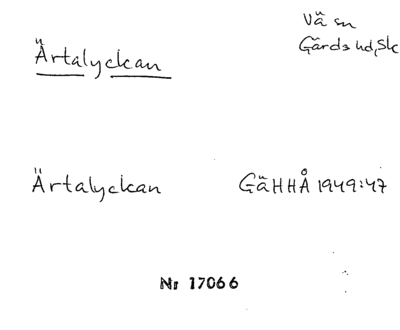 Ärtalyckan
Vä sn
Gärds hd, Sk
Ärtalyckan GäHHÅ 1949:47
Nr 17066